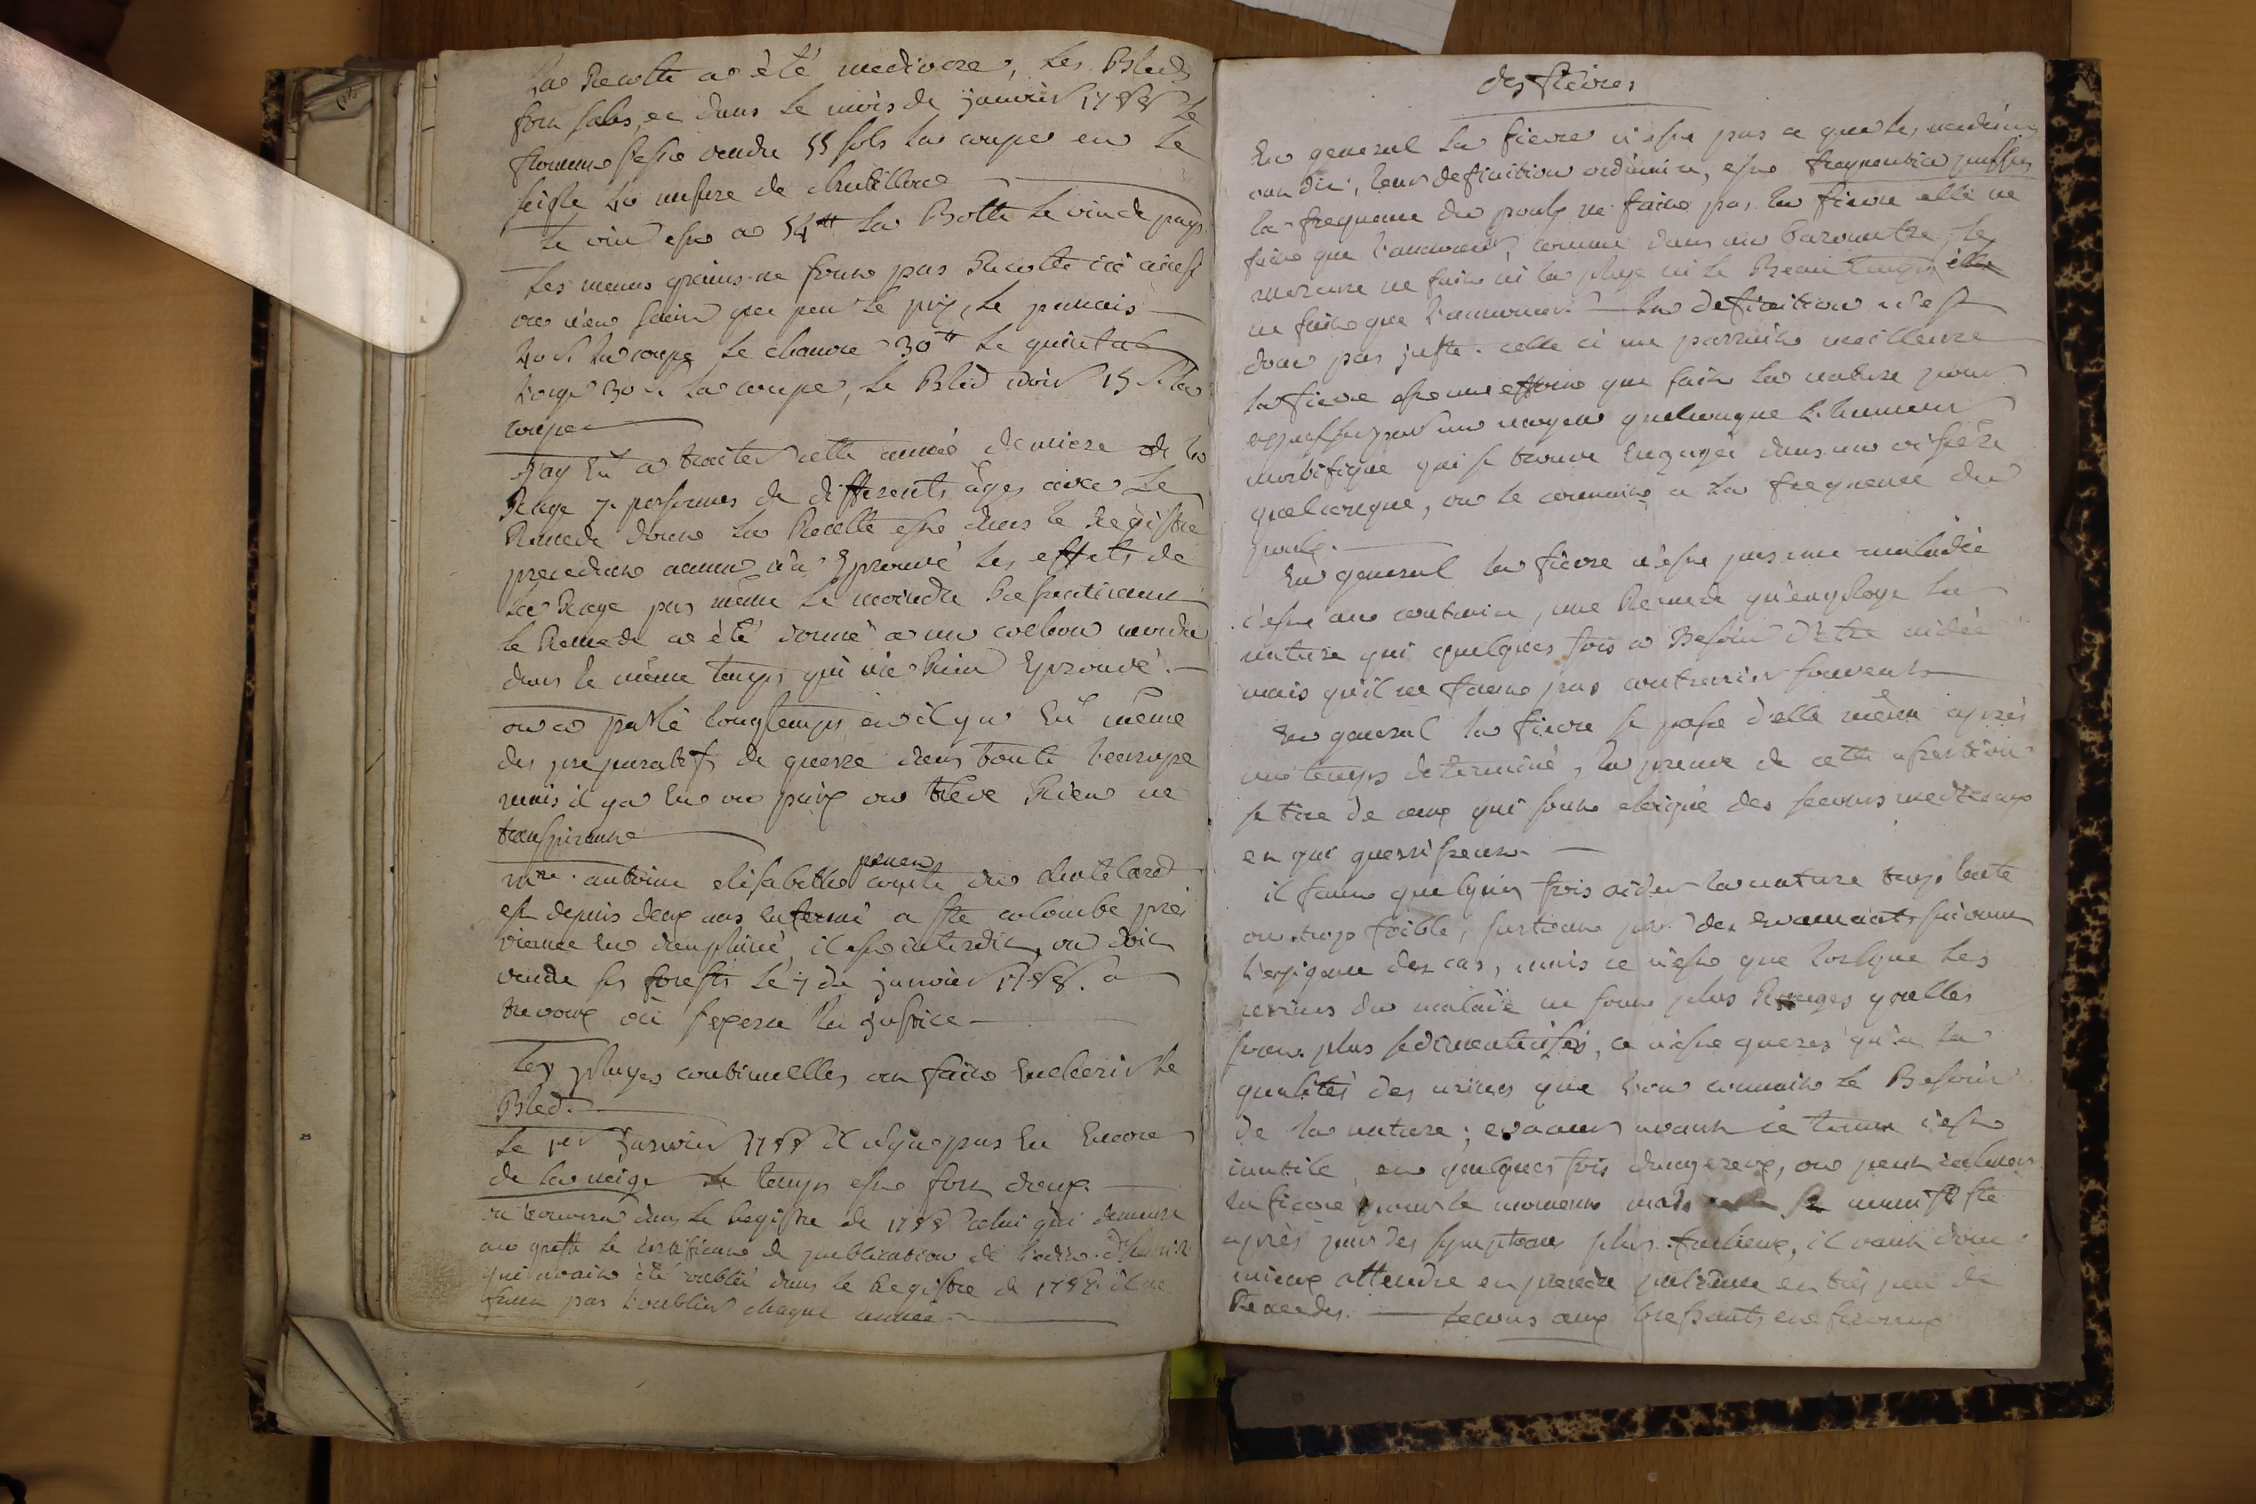 La Recolte a été mediocre, les Bleds
son sales, et dans le mois de janvier 1788 le
froment sest vendu 55 sols la coupe et le
seigle 40 mesure de chatillon
le vin est a 54 tt la Botte le vin de pays
Les menus grains ne sont pas Recolte ici ainsi
on n'en scait que peu le prix, le panais
40 s la coupe le chanvre 30 tt le quintal
l'orge 30 s la coupe, le Bled noir 15 s la
coupe
J'ay Eu a traiter cette année derniere de la
Rage 7 personnes de differents âges avec le
Remede donc la Recette est dans le Registre
precedent aucun n'a Eprouvé les effets de
la Rage pas même le moindre Ressentiment
le Remede a été donné a un cochon mordu
dans le même temps qui n'a Rien Eprouvé.
on a parlé longtemps et il y a Eu même
des preparatifs de guerre dans toute l'europe
mais il y a Eu ou paix ou trève Rien ne
transpirant
mre antoine elisabeth comte du chatelard
est depuis deux ans enfermé a ste colombe près
vienne en dauphiné, il est interdit, on doit
vendre ses forests le 7 du janvier 1788. a
trevoux où s'exerce la justice
les pluyes continuelles on fait Encherir le
Bled.
Le 1er Janvier 1788 il n'y a pas Eu Encore
de la neige le temps est fort doux.
on trouvera dans le Registre de 1788 celui qui demeure
au greffe le certificat de publication de l'edit d'henri 2
qui avait été oublié dans le Registre de 1788 il ne
faut pas l'oublier chaque année.
des fièvres
En general la fievre n'est pas ce que les medecins
ont dit, leur definition ordinaire, est frequentia pulsus
la frequence du poulx ne fait pas la fievre elle ne
fait que l'annoncer, comme dans un barometre, le
mercure ne fait ni la pluye ni le Beau temps elle
ne fait que l'annoncer. La definition n'est
donc pas juste. celle ci me parroit meilleure
la fievre est une effort que fait la nature pour
expulser par un moyen quelconque l'humeur
morbifique qui se trouve Engagée dans un viscère
quelconque, on le connait a la frequence du
poulx.
En general la fièvre n'est pas une maladie
c'est au contraire, une Remede qu'employe la
nature qui quelques fois a Besoin d'être aidée
mais qu'il ne faut pas contrarier souvent
En general la fievre se passe d'elle même après
un temps determiné, la preuve de cette assertion
se tire de ceux qui sont eloigné des secours medicaux
et qui guerrissent.
il faut quelques fois aider la nature trop lente
ou trop foible, surtout par des evacuants suivant
l'exigence des cas, mais ce n'est que lorsque les
urines du malade ne sont plus Rouges qu'elles
sont plus sedimenteuses, ce n'est gueres qu'a la
qualités des urines que l'on connait le Besoin
de la nature; evacuer avant ce terme c'est
inutile, et quelques fois dangereux, on peut calmer
la fievre pour le moment mais elle se manifeste
après par des symptomes plus facheux, il vaut donc
mieux attendre et prendre patience et très peu de
Remedes. Lecons aux bressants en fievreux